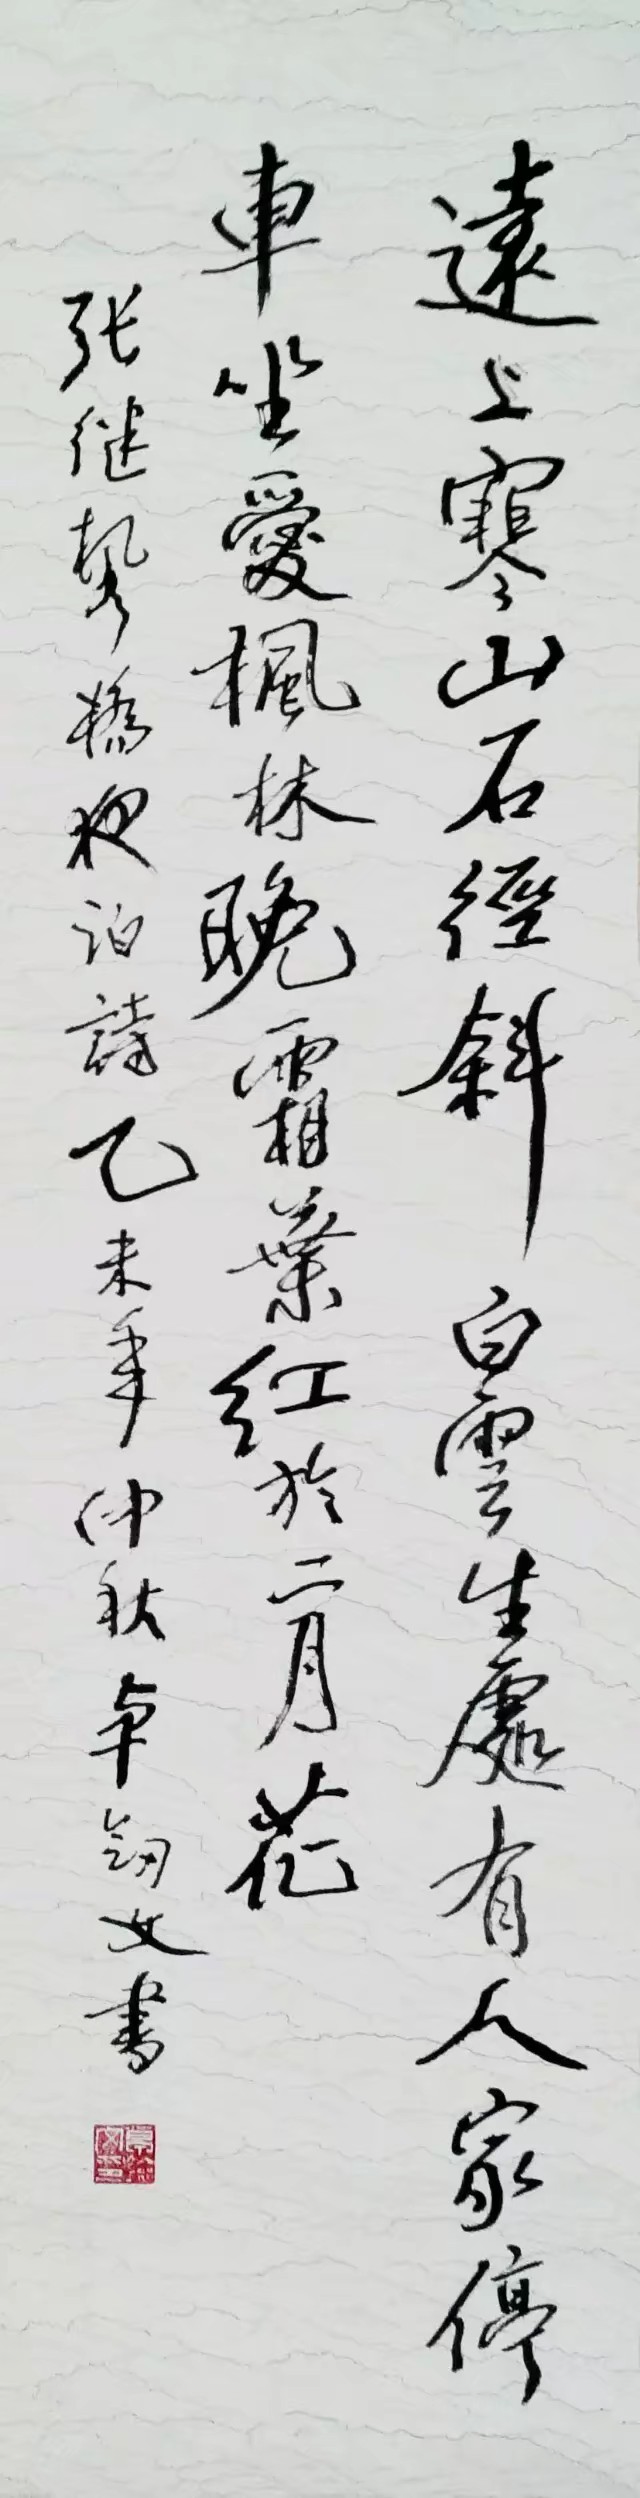 遠上寒山石徑斜白雲生處有人家停
車坐愛楓林晚霜葉紅於二月花
张继橋夜泊詩乙未年仲秋卓文書